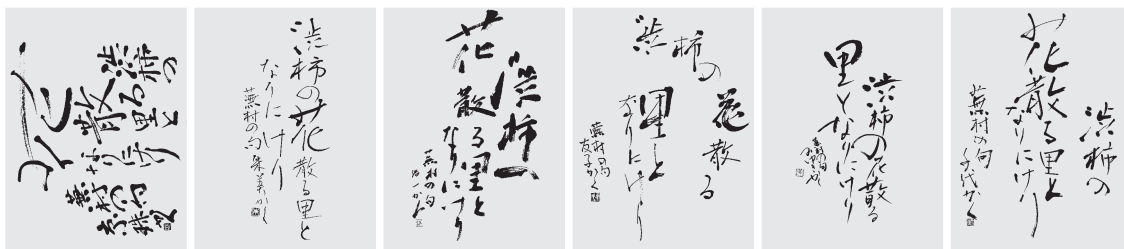 渋柿の
花
散る里と
なりにけり
蕪村の句
渋柿の花散る里と
なりにけり
蕪村の句
渋柿の
花散る里と
なりにけり
蕪村の句
渋柿の
花散る
里と
なりにけり
蕪村の句
友子かく
渋柿の花散る
里となりにけり
渋柿の
花散る里と
なりにけり
蕪村の句